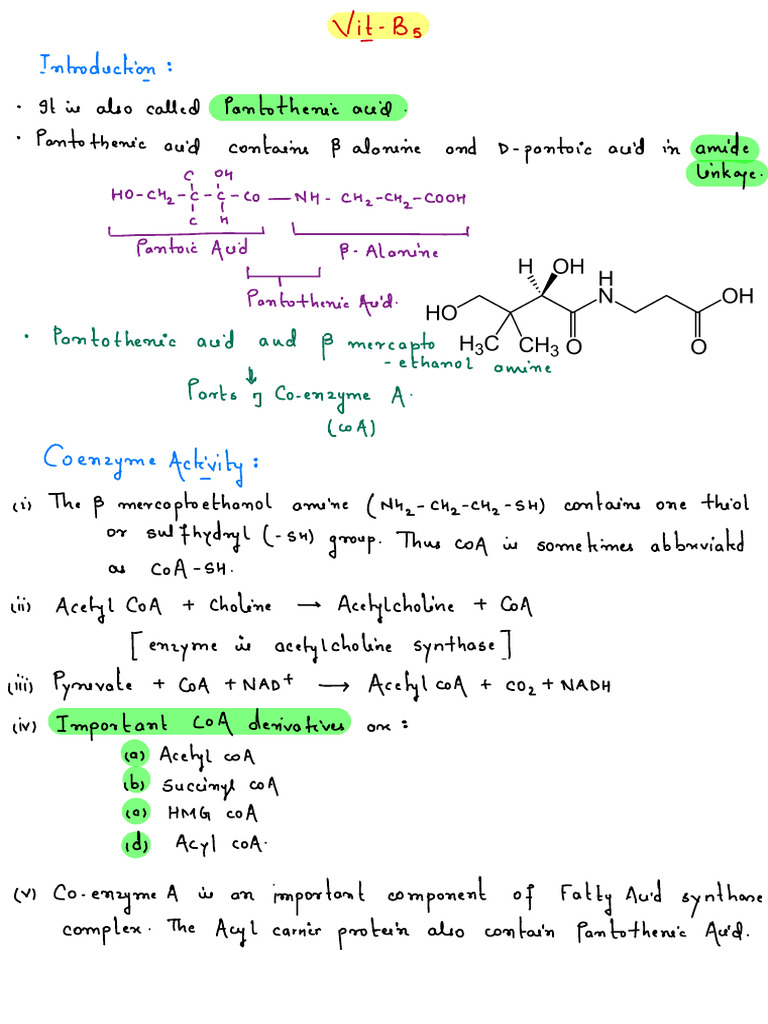 Vit-B5
Introduction :
• It is also called Pantothenic acid.
• Pantothenic acid contains β alanine and D-pantoic acid in amide
linkage.
C OH
HO-CH2-C-C-CO—NH-CH2-CH2-COOH
C H
Pantoic Acid β-Alanine
Pantothenic Acid.
H OH H
HO N OH
H3C CH3 O O
• Pantothenic acid and β mercapto
-ethanol amine
↓
Parts of Co-enzyme A.
(CoA)
Coenzyme Activity :
(i) The β mercaptoethanol amine (NH2-CH2-CH2-SH) contains one thiol
or sulfhydryl (-SH) group. Thus CoA is sometimes abbreviated
as CoA-SH.
(ii) Acetyl CoA + Choline → Acetylcholine + CoA
[enzyme is acetylcholine synthase]
(iii) Pyruvate + CoA + NAD+ → Acetyl CoA + CO2 + NADH
(iv) Important CoA derivatives are :
(a) Acetyl CoA
(b) Succinyl CoA
(a) HMG CoA
(d) Acyl CoA.
(v) Co-enzyme A is an important component of Fatty Acid synthase
complex. The Acyl carrier protein also contain Pantothenic Acid.